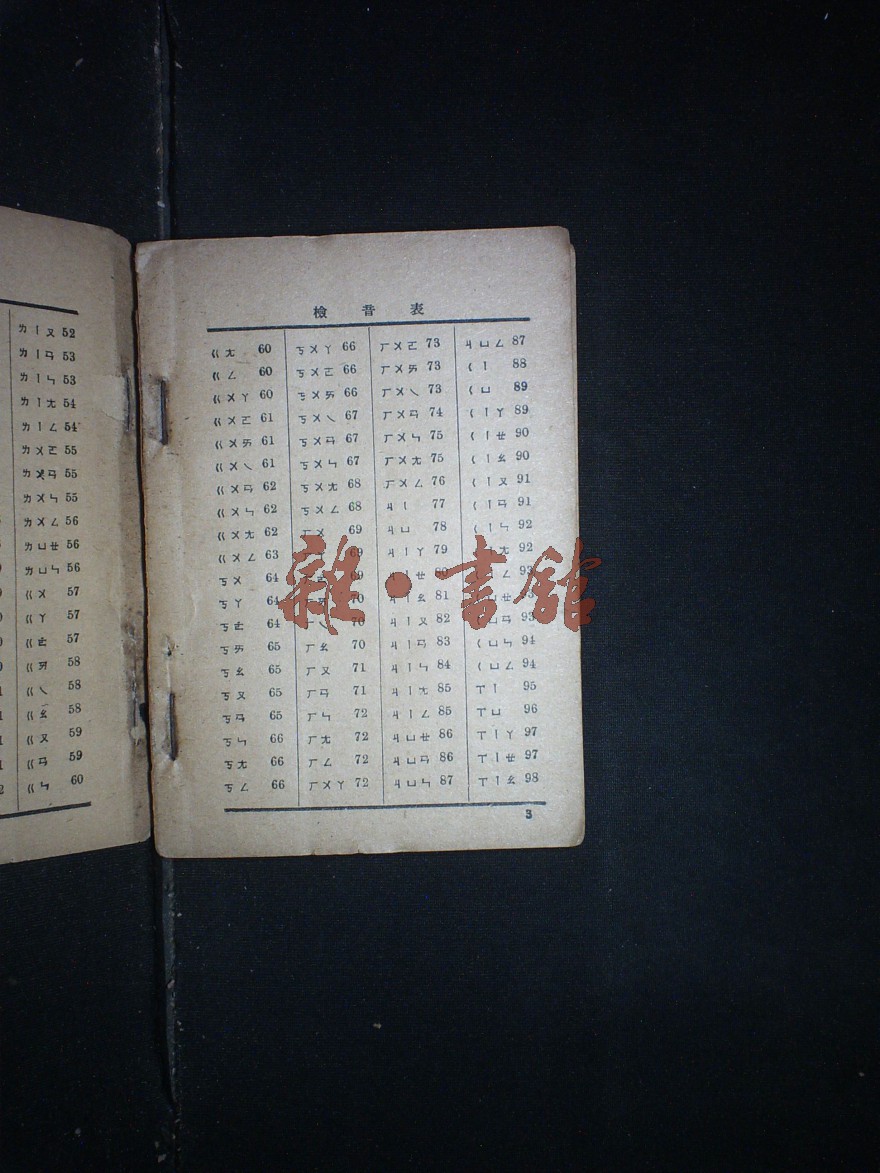 ㄌㄧㄡ 52
ㄌㄧㄢ 53
ㄌㄧㄣ 53
ㄌㄧㄤ 54
ㄌㄧㄥ 54
ㄌㄨㄛ 55
ㄌㄨㄢ 55
ㄌㄨㄣ 55
ㄌㄨㄥ 56
ㄌㄩㄝ 56
ㄌㄩㄣ 56
ㄍㄨ 57
ㄍㄚ 57
ㄍㄜ 57
ㄍㄞ 58
ㄍㄟ 58
ㄍㄠ 58
ㄍㄡ 59
ㄍㄢ 59
ㄍㄣ 60
檢音表
ㄍㄤ 60
ㄍㄥ 60
ㄍㄨㄚ 60
ㄍㄨㄛ 61
ㄍㄨㄞ 61
ㄍㄨㄟ 61
ㄍㄨㄢ 62
ㄍㄨㄣ 62
ㄍㄨㄤ 62
ㄍㄨㄥ 63
ㄎㄨ 64
ㄎㄚ 64
ㄎㄜ 64
ㄎㄞ 65
ㄎㄠ 65
ㄎㄡ 65
ㄎㄢ 65
ㄎㄣ 66
ㄎㄤ 66
ㄎㄥ 66
ㄎㄨㄚ 66
ㄎㄨㄛ 66
ㄎㄨㄞ 66
ㄎㄨㄟ 67
ㄎㄨㄢ 67
ㄎㄨㄣ 67
ㄎㄨㄤ 68
ㄎㄨㄥ 68
ㄏㄨ 69
69
69
70
ㄏㄟ 70
ㄏㄠ 70
ㄏㄡ 71
ㄏㄢ 71
ㄏㄣ 72
ㄏㄤ 72
ㄏㄥ 72
ㄏㄨㄚ 72
ㄏㄨㄛ 73
ㄏㄨㄞ 73
ㄏㄨㄟ 73
ㄏㄨㄢ 74
ㄏㄨㄣ 75
ㄏㄨㄤ 75
ㄏㄨㄥ 76
ㄐㄧ 77
ㄐㄩ 78
ㄐㄧㄚ 79
ㄐㄧㄝ 80
ㄐㄧㄠ 81
ㄐㄧㄡ 82
ㄐㄧㄢ 83
ㄐㄧㄣ 84
ㄐㄧㄤ 85
ㄐㄧㄥ 85
ㄐㄩㄝ 86
ㄐㄩㄢ 86
ㄐㄩㄣ 87
ㄐㄩㄥ 87
ㄑㄧ 88
ㄑㄩ 89
ㄑㄧㄚ 89
ㄑㄧㄝ 90
ㄑㄧㄠ 90
ㄑㄧㄡ 91
ㄑㄧㄢ 91
ㄑㄧㄣ 92
ㄤ 92
ㄥ 93
ㄩㄝ 93
ㄑㄩㄢ 93
ㄑㄩㄣ 94
ㄑㄩㄥ 94
ㄒㄧ 95
ㄒㄩ 96
ㄒㄧㄚ 97
ㄒㄧㄝ 97
ㄒㄧㄠ 98
3
雜·書館